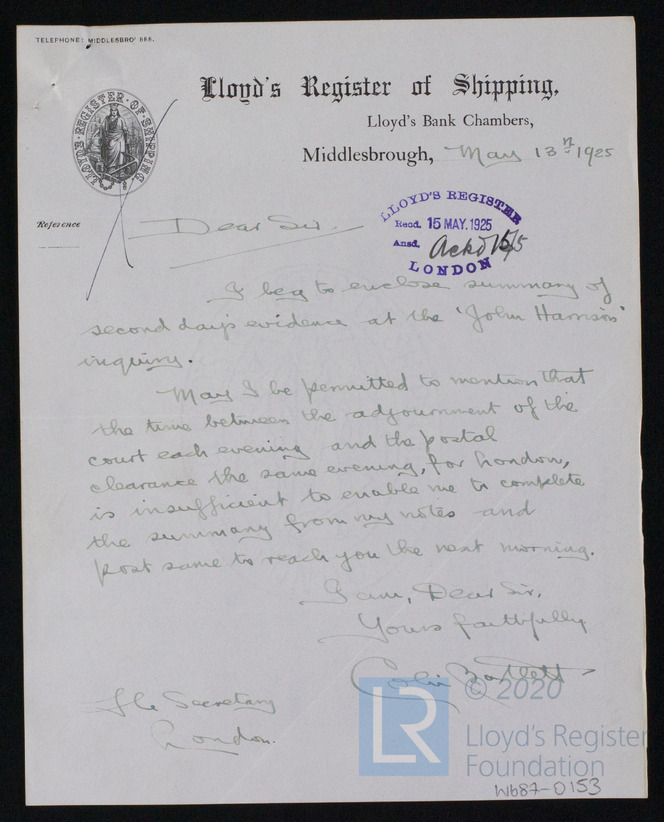 TELEPHONE: MIDDLESBRO' 666.
Lloyd's Register of Shipping,
Lloyd's Bank Chambers,
Middlesbrough, May 13th 1925
LLOYD'S REGISTER OF SHIPPING
Reference
LLOYD'S REGISTER
Recd. 15 MAY. 1925
Ansd. Ackd 15/5
LONDON
Dear Sir.
I beg to enclose summary of
second day's evidence at the 'John Harrison'
inquiry.
May I be permitted to mention that
the time between the adjournment of the
court each evening and the postal
clearance the same evening, for London,
is insufficient to enable me to complete
the summary from my notes and
post same to reach you the next morning.
I am, Dear Sir,
Yours faithfully
Colin Bartlett
The Secretary
London.
LR
© 2020
Lloyd's Register
Foundation
W687-0153